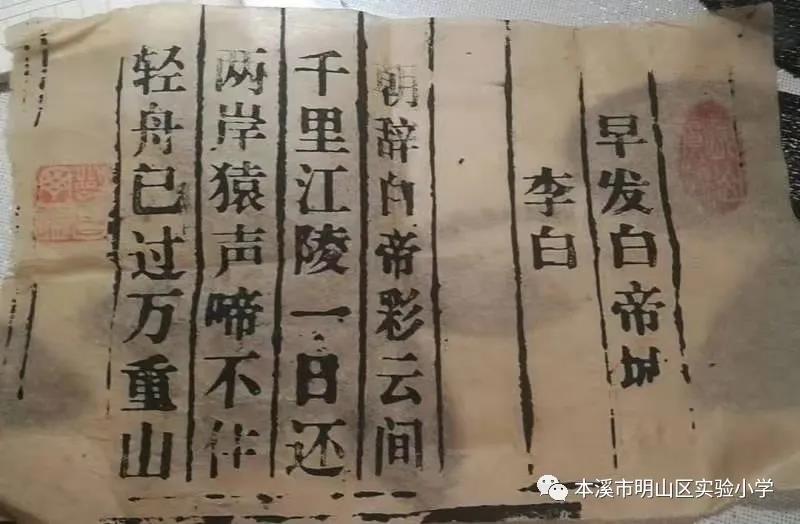 早发白帝城
李白
朝辞白帝彩云间
千里江陵一日还
两岸猿声啼不住
轻舟已过万重山
本溪市明山区实验小学